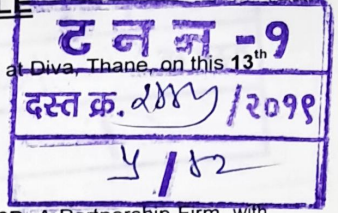 ट न न -१
at Diva, Thane, on this 13th
दस्त क्र. २४४५/२०१९
५/५२
A Partnership Firm, with